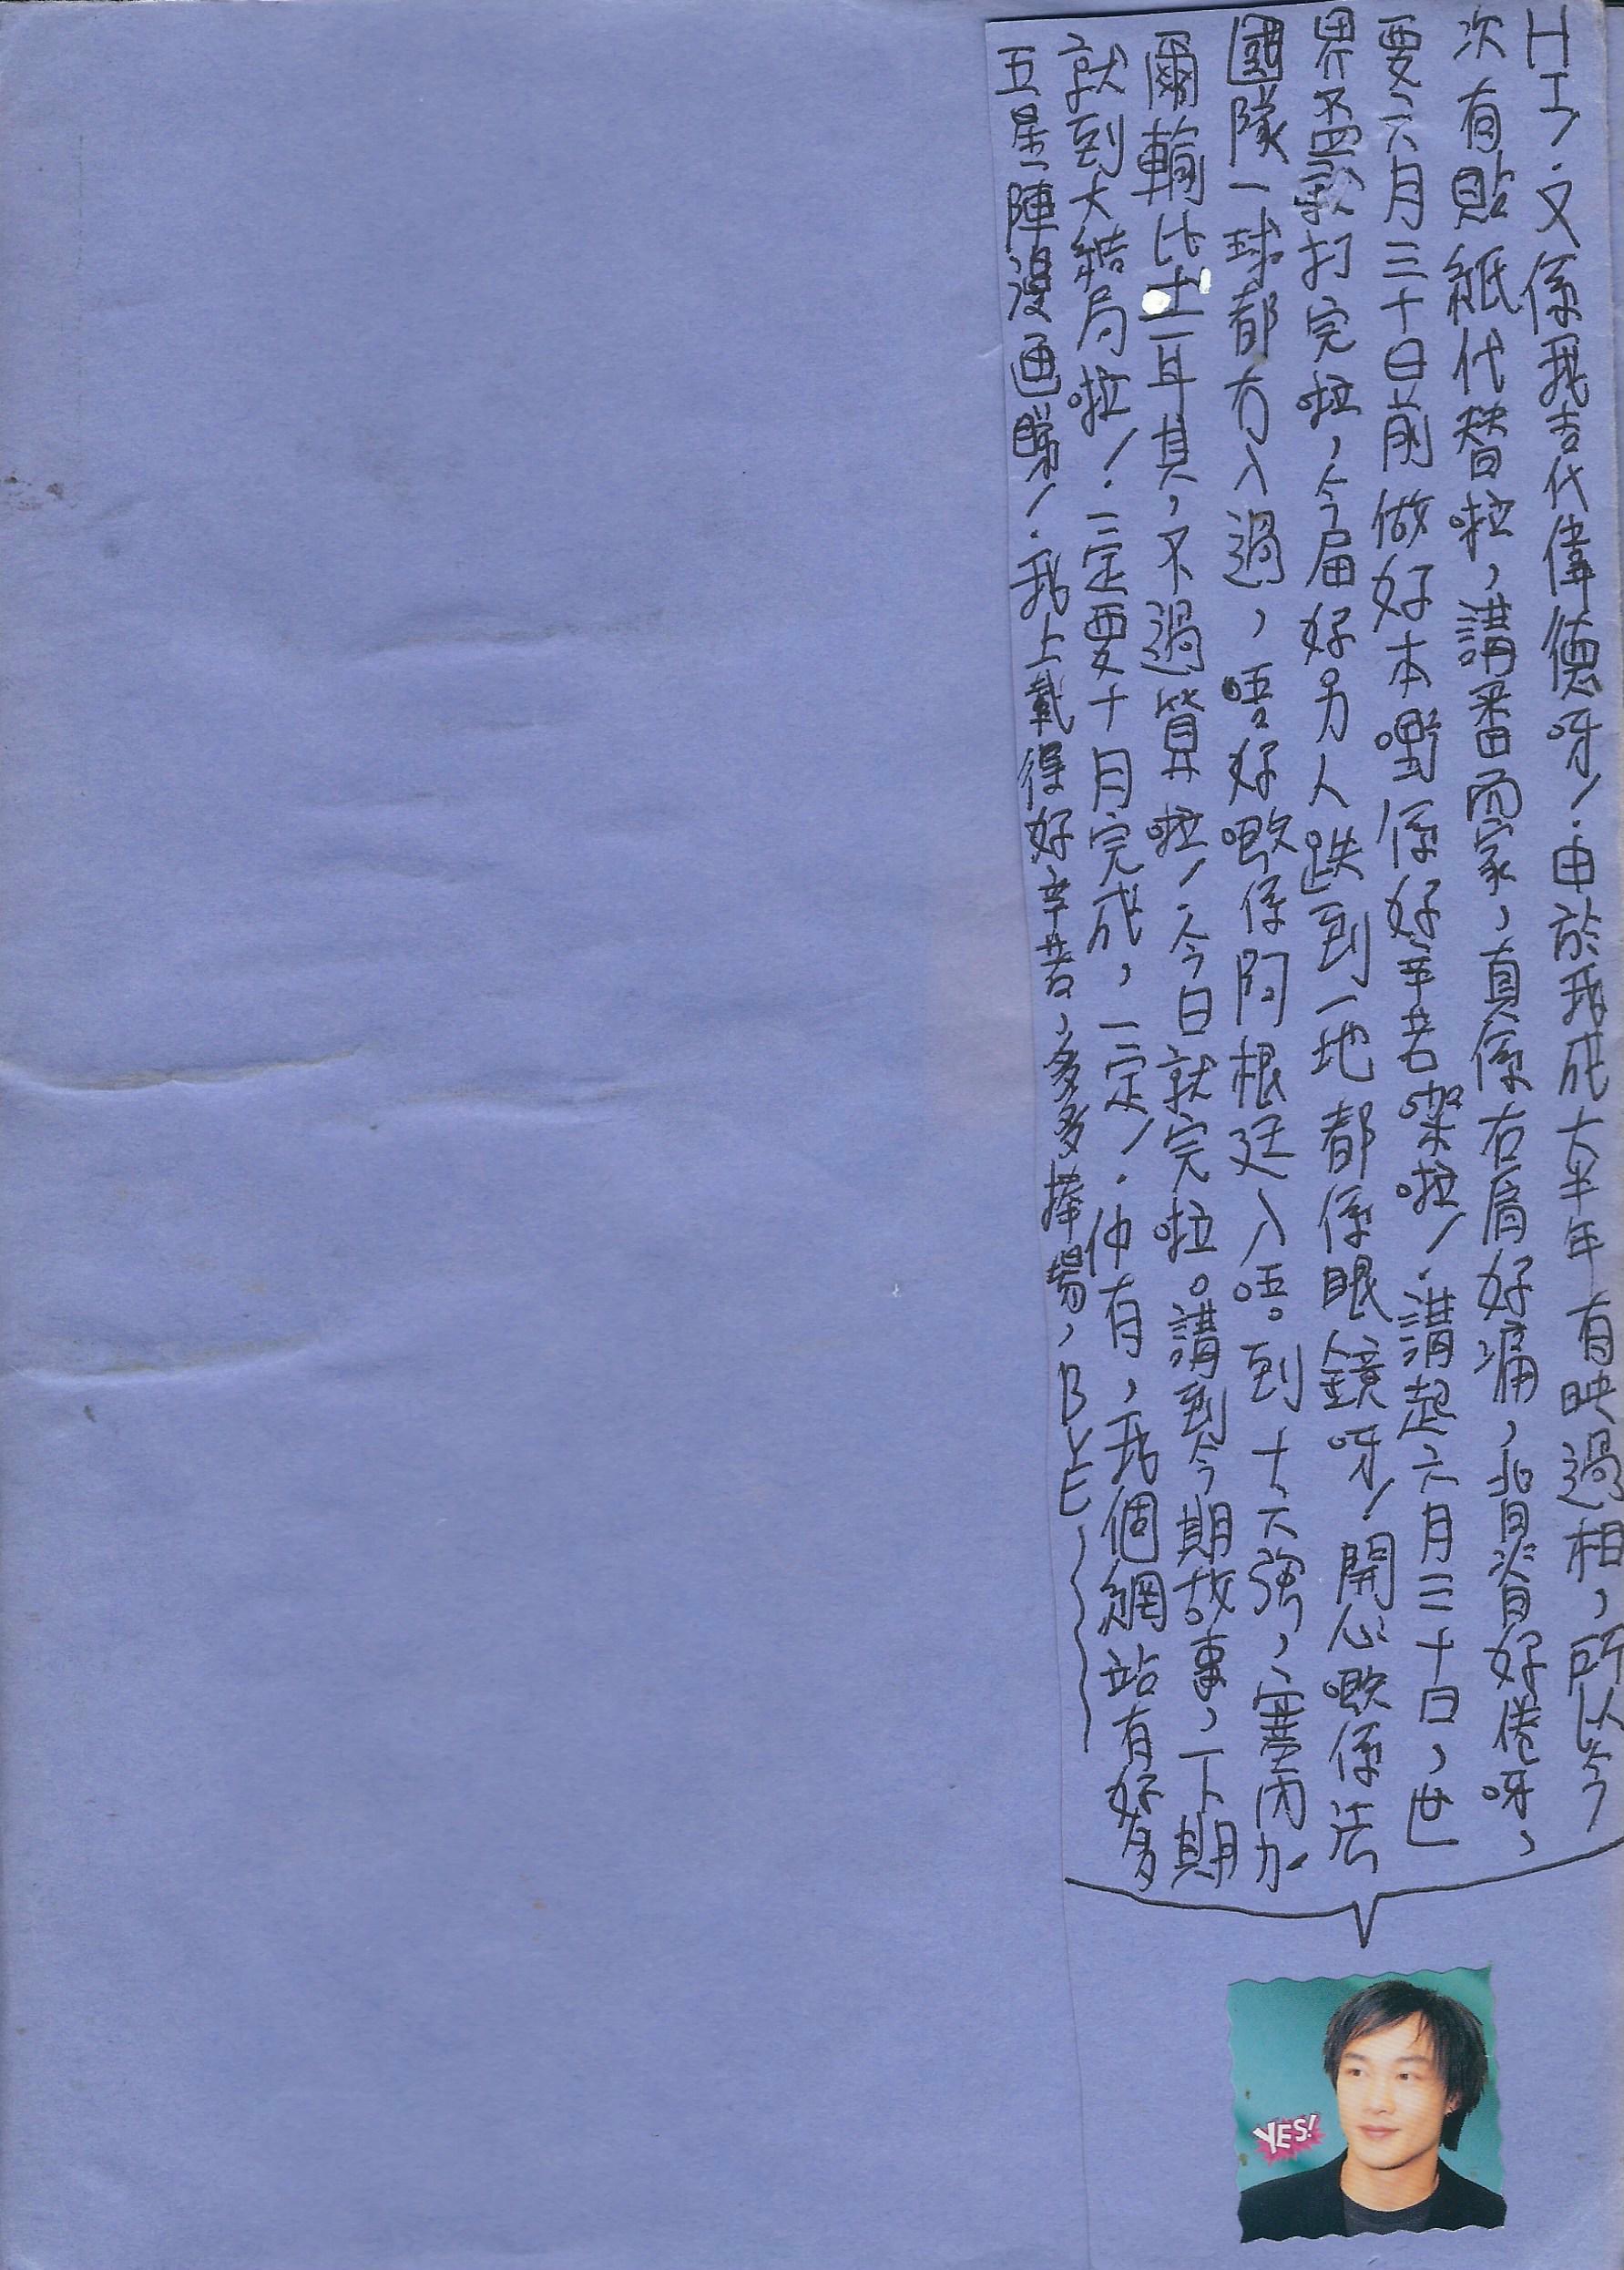 HI！又係我吉代偉德呀！由於我成大半年有映過相，所以今
次有貼紙代替啦，講番而家，真係右肩好痛，背脊好倦呀，
要六月三十日前做好本嘢係好辛苦㗎啦！講起六月三十日，世
界盃就打完啦，今屆好多人跌到一地都係眼鏡呀！開心嘅係法
國隊一球都冇入過，唔好嘅係阿根廷入唔到十六強，塞內加
爾輸比土耳其，不過算啦！今日就完啦。講到今期故事，下期
就到大結局啦！一定要十月完成，一定！仲有，我個網站有好多
五星陣漫画睇！我上載得好辛苦，多多捧場，BYE
YES!